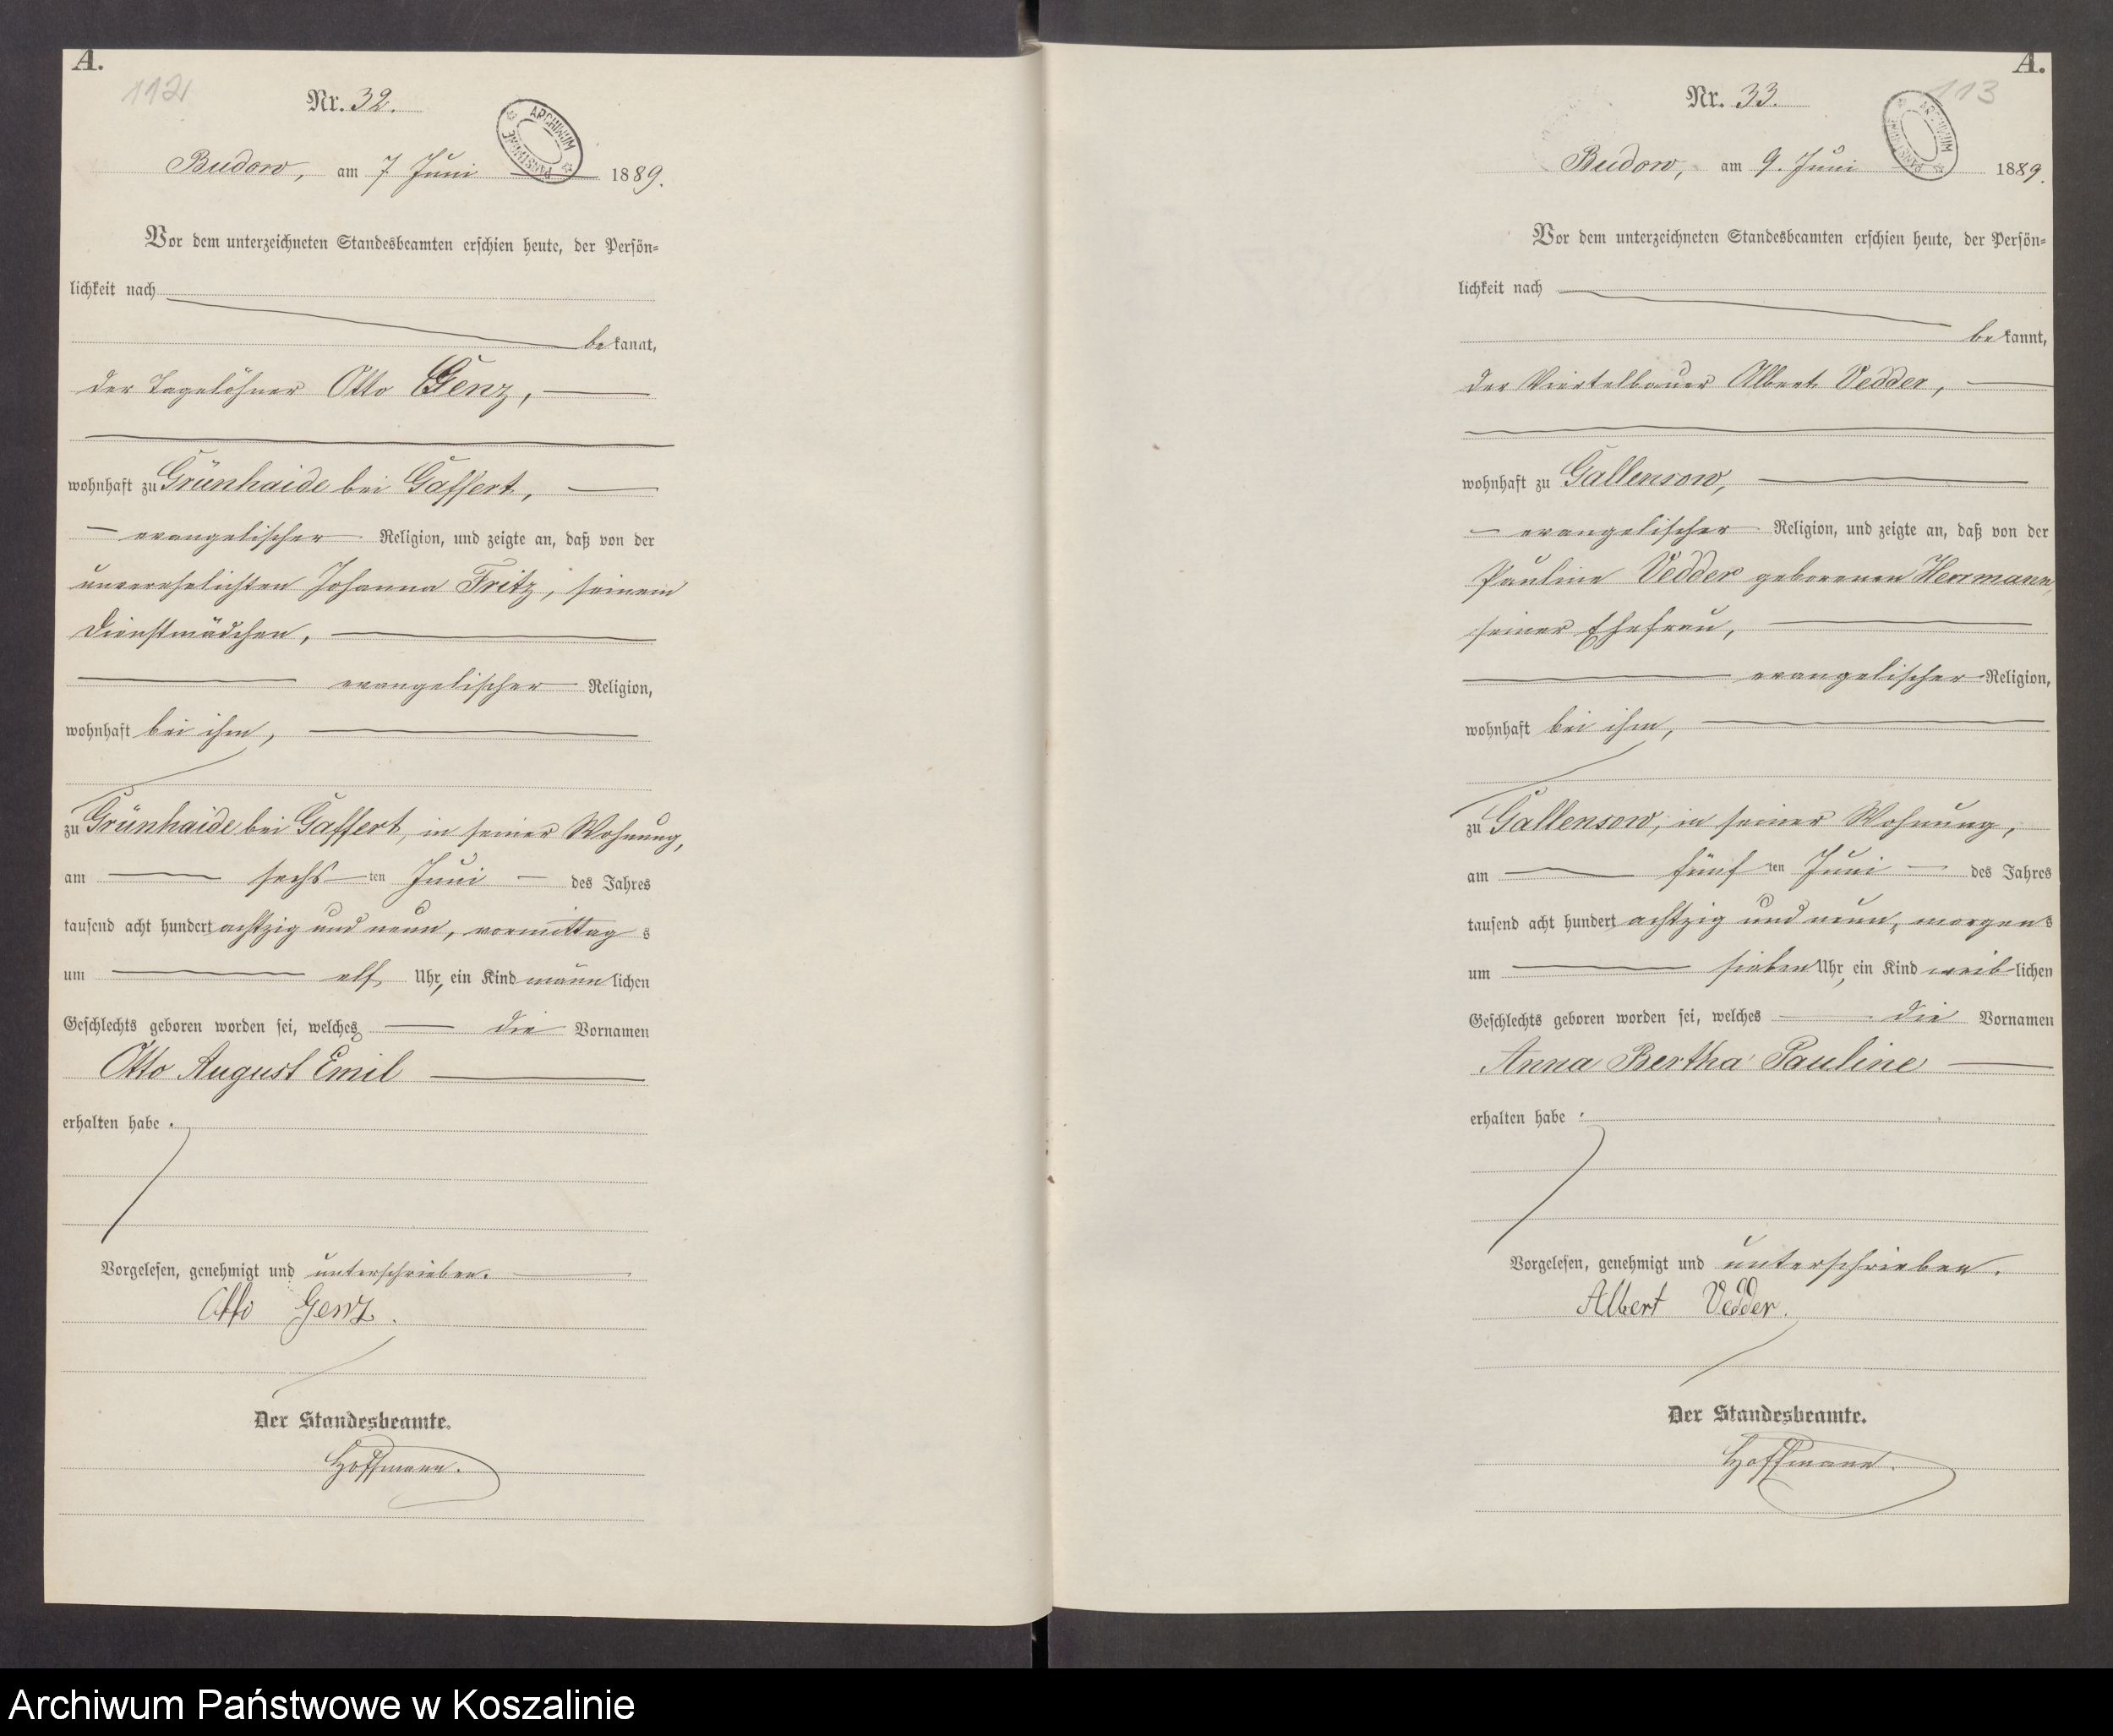 A.
112
Nr. 32.
ARCHIWUM PAŃSTWOWE
Budow, am 7. Juni 1889.
Vor dem unterzeichneten Standesbeamten erschien heute, der Persön-
lichkeit nach
bekannt,
der Tagelöhner Otto Genz,
wohnhaft zu Grünhaide bei Gaffert,
evangelischer Religion, und zeigte an, daß von der
unverehelichten Johanna Fritz, seinem
Dienstmädchen,
evangelischer Religion,
wohnhaft bei ihm,
zu Grünhaide bei Gaffert, in seiner Wohnung,
am sechs ten Juni des Jahres
tausend acht hundert achtzig und neun, vormittags
um elf Uhr, ein Kind männlichen
Geschlechts geboren worden sei, welches die Vornamen
Otto August Emil
erhalten habe.
Vorgelesen, genehmigt und unterschrieben.
Otto Genz.
Der Standesbeamte.
Hoffmann.
A.
113
Nr. 33.
ARCHIWUM PAŃSTWOWE
Budow, am 9. Juni 1889.
Vor dem unterzeichneten Standesbeamten erschien heute, der Persön-
lichkeit nach
bekannt,
der Viertelbauer Albert Vedder,
wohnhaft zu Gallensow,
evangelischer Religion, und zeigte an, daß von der
Pauline Vedder geborenen Herrmann,
seiner Ehefrau,
evangelischer Religion,
wohnhaft bei ihm,
zu Gallensow, in seiner Wohnung,
am fünf ten Juni des Jahres
tausend acht hundert achtzig und neun, morgens
um sieben Uhr, ein Kind weiblichen
Geschlechts geboren worden sei, welches die Vornamen
Anna Bertha Pauline
erhalten habe.
Vorgelesen, genehmigt und unterschrieben.
Albert Vedder.
Der Standesbeamte.
Hoffmann.
Archiwum Państwowe w Koszalinie